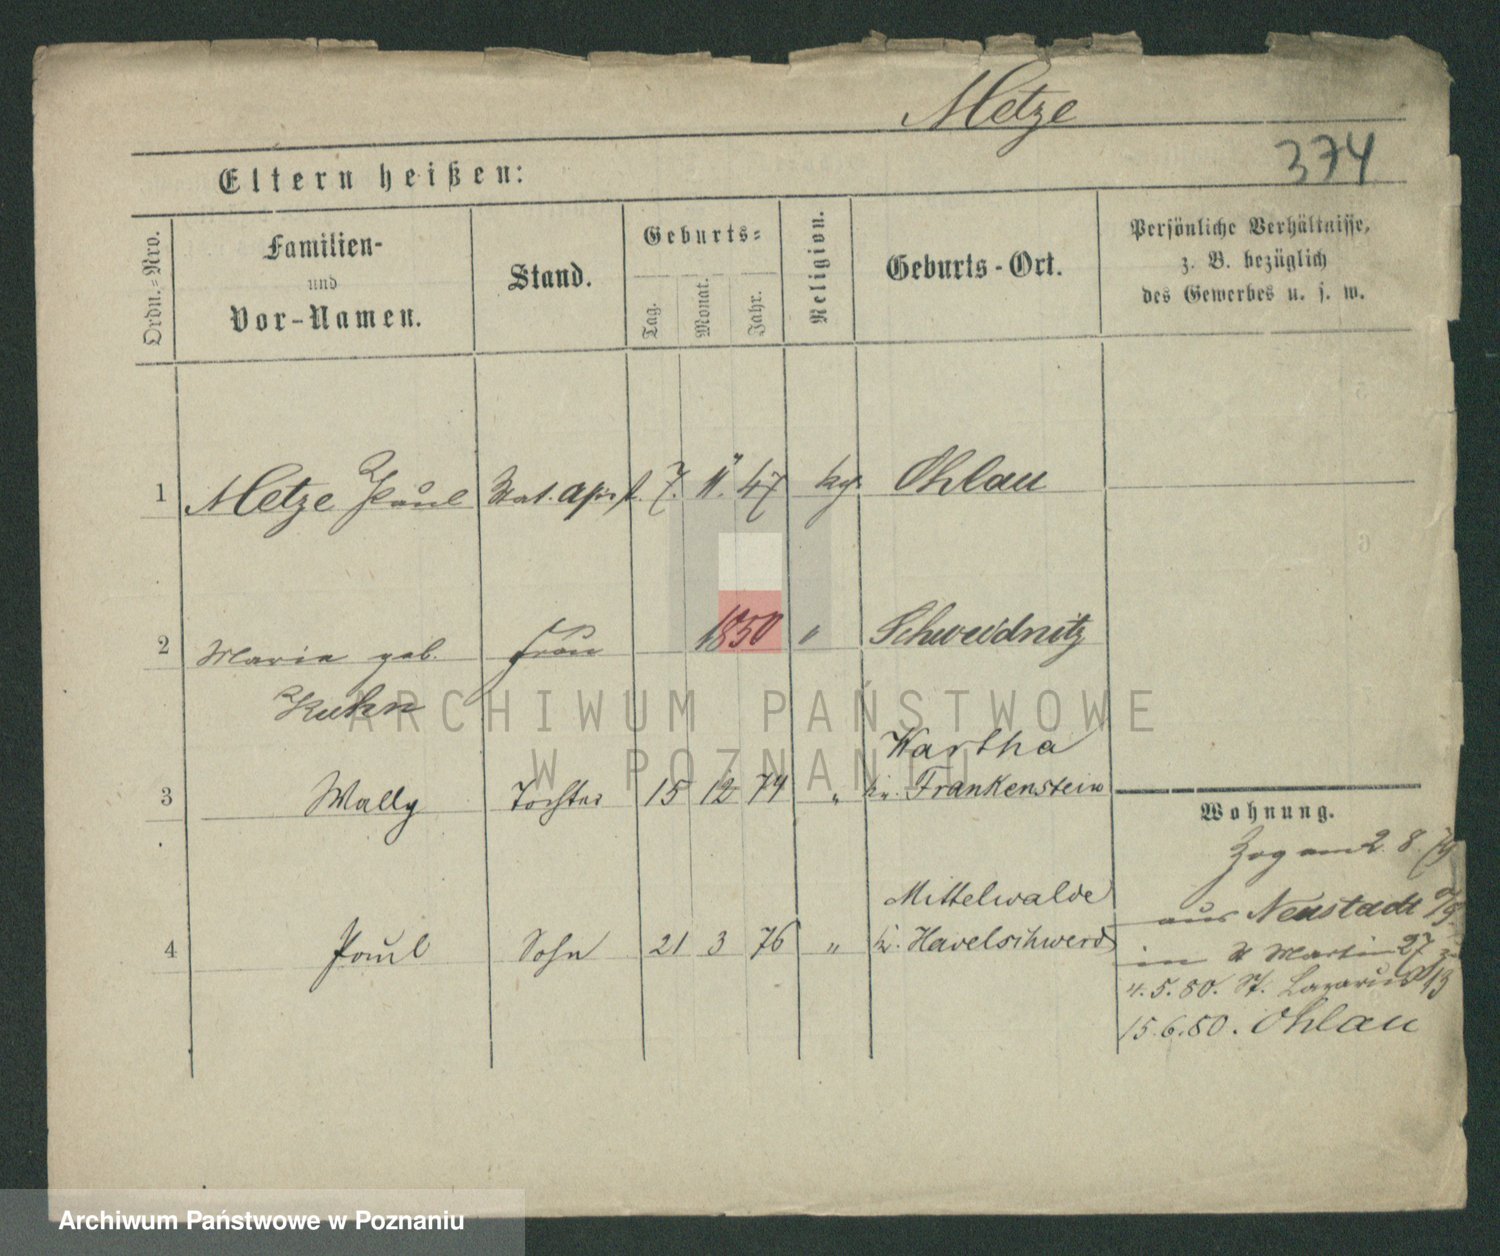 Metze
374
Eltern heißen:
Ordn.-Nro.
Familien-
und
Vor-Namen.
Stand.
Geburts-
Tag.
Monat.
Jahr.
Religion.
Geburts-Ort.
Persönliche Verhältnisse,
z. B. bezüglich
des Gewerbes u. s. w.
1 Metze Paul 7. 11. 47 Ohlau
2 Marie geb. Frau 1850 " Schweidnitz
Kuhn
3 Wally Tochter 15 12 74 " Wartha
Frankenstein
4 Paul Sohn 21 3 76 " Mittelwalde
Kr. Havelschwerd
Wohnung.
Zog am 2. 8. 79
aus Neustadt
in St Martin 27
4.5.80. St. Lazarus 13
15.6.80. Ohlau
ARCHIWUM PAŃSTWOWE
W POZNANIU
Archiwum Państwowe w Poznaniu